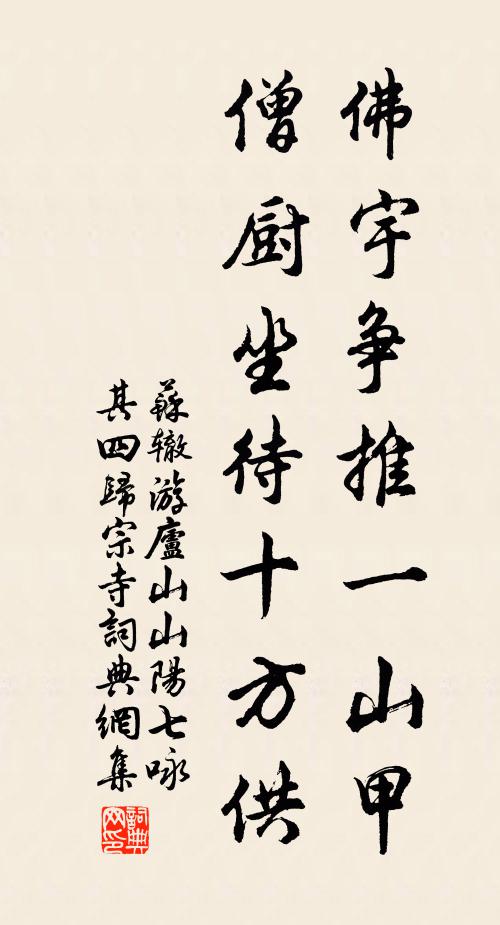 佛宇争推一山甲
僧厨坐待十方供
蘇辙游廬山山陽七咏
其四歸宗寺詞典網集
詞典網印